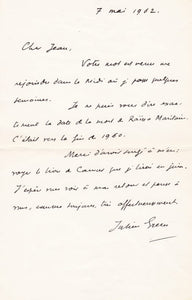 7 mai 1962.
Cher Jean,
Votre mot est venu me
rejoindre dans le Midi où je passe quelques
semaines.
Je ne puis vous dire exac-
tement la date de la mort de Raïssa Maritain.
C'était vers la fin de 1960.
Merci d'avoir songé à
le livre de Camus que je lirai en juin.
J'espère vous voir à mon retour et pense à
vous, toujours, très affectueusement
Julien Green